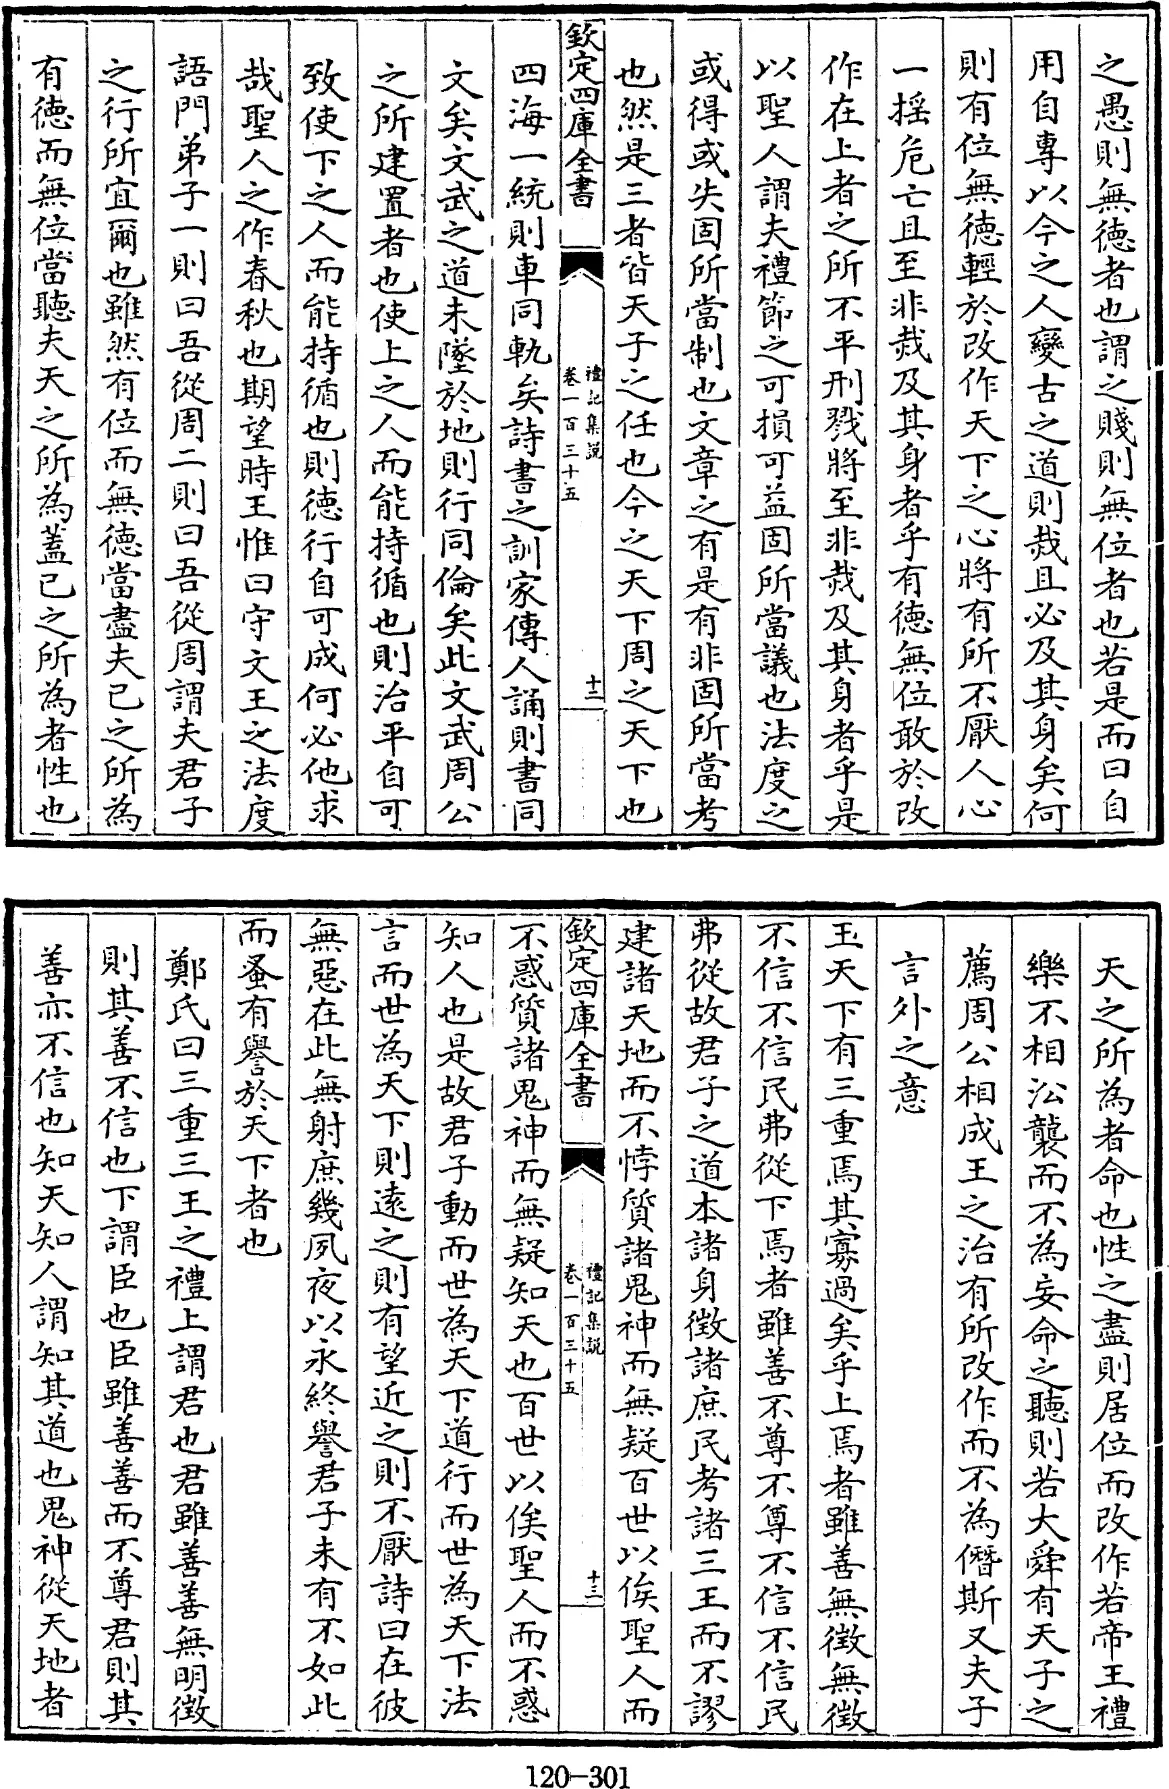 之愚則無德者也謂之賤則無位者也若是而曰自
用自專以今之人變古之道則烖且必及其身矣何
則有位無德輕於改作天下之心將有所不厭人心
一揺危亡且至非烖及其身者乎有德無位敢於改
作在上者之所不平刑戮將至非烖及其身者乎是
以聖人謂夫禮節之可損可益固所當議也法度之
或得或失固所當制也文章之有是有非固所當考
也然是三者皆天子之任也今之天下周之天下也
欽定四庫全書
禮記集説
卷一百三十五
十二
四海一統則車同軌矣詩書之訓家傳人誦則書同
文矣文武之道未墜於地則行同倫矣此文武周公
之所建置者也使上之人而能持循也則治平自可
致使下之人而能持循也則德行自可成何必他求
哉聖人之作春秋也期望時王惟曰守文王之法度
語門弟子一則曰吾從周二則曰吾從周謂夫君子
之行所宜爾也雖然有位而無德當盡夫已之所為
有德而無位當聽夫天之所為蓋已之所為者性也
天之所為者命也性之盡則居位而改作若帝王禮
樂不相沿襲而不為妄命之聽則若大舜有天子之
薦周公相成王之治有所改作而不為僭斯又夫子
言外之意
王天下有三重焉其寡過矣乎上焉者雖善無徴無徴
不信不信民弗從下焉者雖善不尊不尊不信不信民
弗從故君子之道本諸身徴諸庶民考諸三王而不謬
建諸天地而不悖質諸鬼神而無疑百世以俟聖人而
欽定四庫全書
禮記集説
卷一百三十五
十三
不惑質諸鬼神而無疑知天也百世以俟聖人而不惑
知人也是故君子動而世為天下道行而世為天下法
言而世為天下則逺之則有望近之則不厭詩曰在彼
無惡在此無射庶幾夙夜以永終譽君子未有不如此
而蚤有譽於天下者也
鄭氏曰三重三王之禮上謂君也君雖善善無明徴
則其善不信也下謂臣也臣雖善善而不尊君則其
善亦不信也知天知人謂知其道也鬼神從天地者
120-301